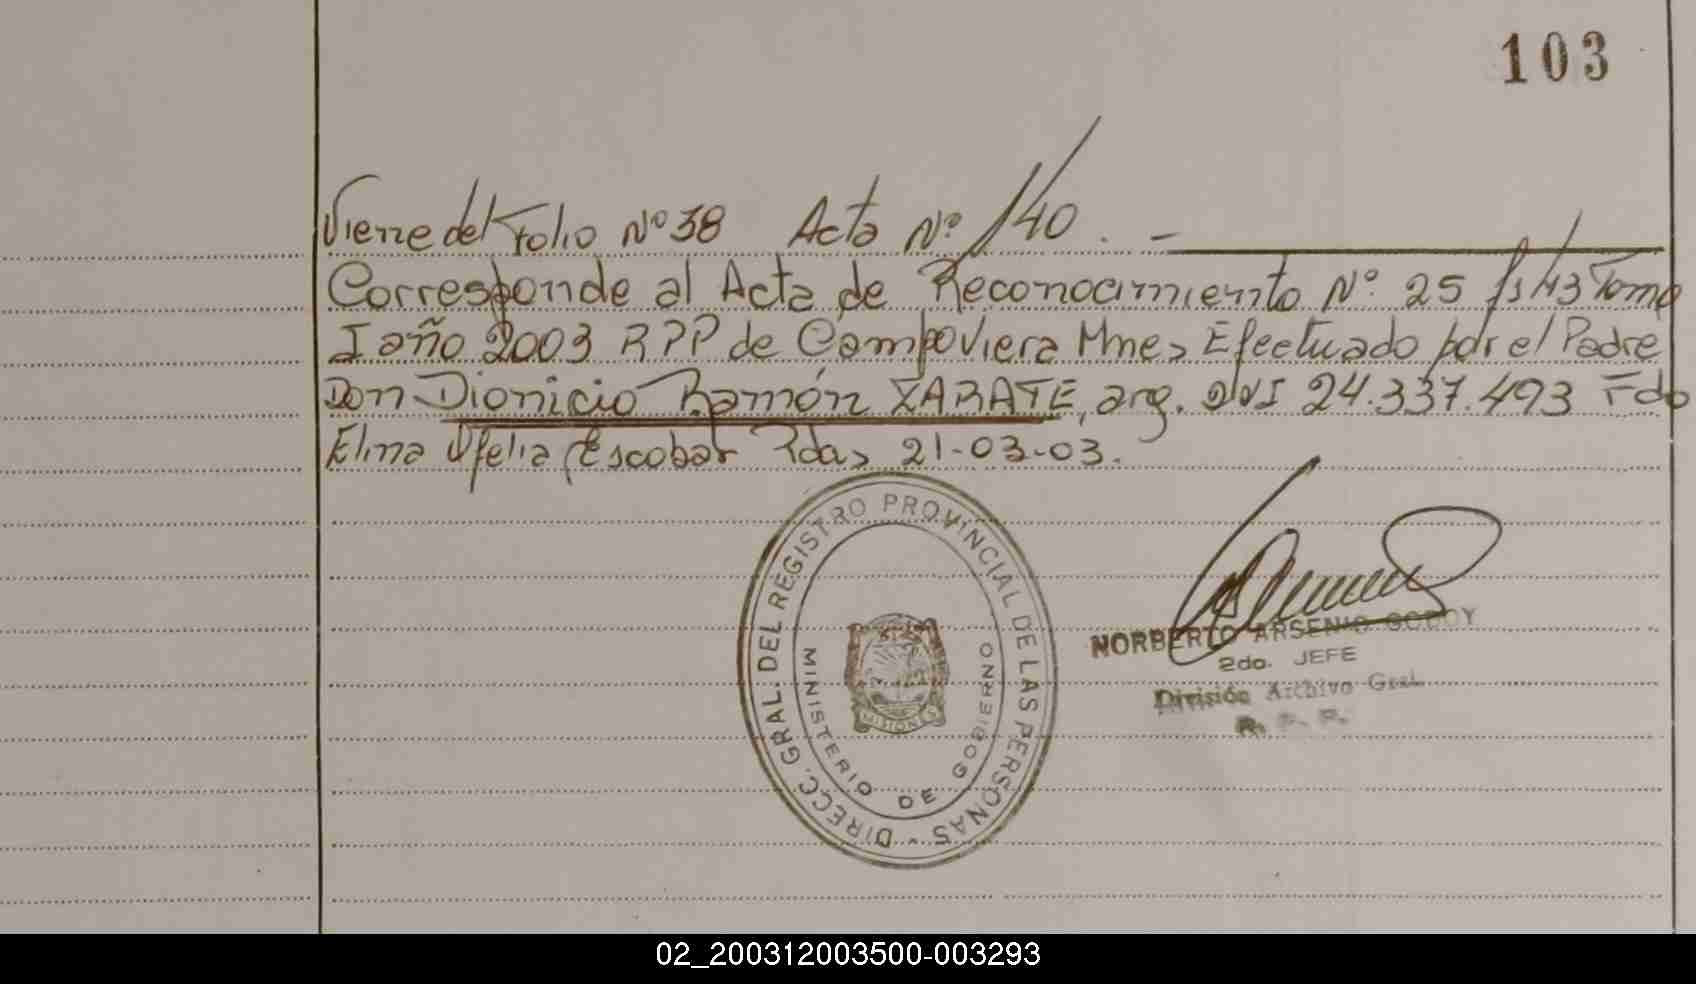 103
Viene del Folio Nº 38 Acta Nº 140. -
Corresponde al Acta de Reconocimiento Nº 25 fs 43 Tomo
I año 2003 RPP de Campo Viera Mnes Efectuado por el Padre
Don Dionicio Ramón ZARATE, arg. DNI 24.337.493 Fdo
Elina Ofelia Escobar Pdas 21-03-03.
DIRECC. GRAL. DEL REGISTRO PROVINCIAL DE LAS PERSONAS -
MINISTERIO DE GOBIERNO
MISIONES
NORBERTO ARSENIO GODOY
2do. JEFE
División Archivo Gral.
R. P. P.
02_200312003500-003293